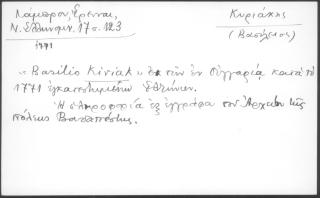 Λάμπρου, Έρευναι,
Ν. Ἑλληνομν. 17 σ. 123
1771
Κυριάκης
(Βασίλειος)
« Basilio Kiriak » ἐκ τῶν ἐν Οὑγγαρίᾳ κατὰ τὸ
1771 ἐγκατεστημένων Ἑλλήνων.
Ἡ πληροφορία ἐξ ἐγγράφου τοῦ Ἀρχείου τῆς
πόλεως Βουδαπέστης.